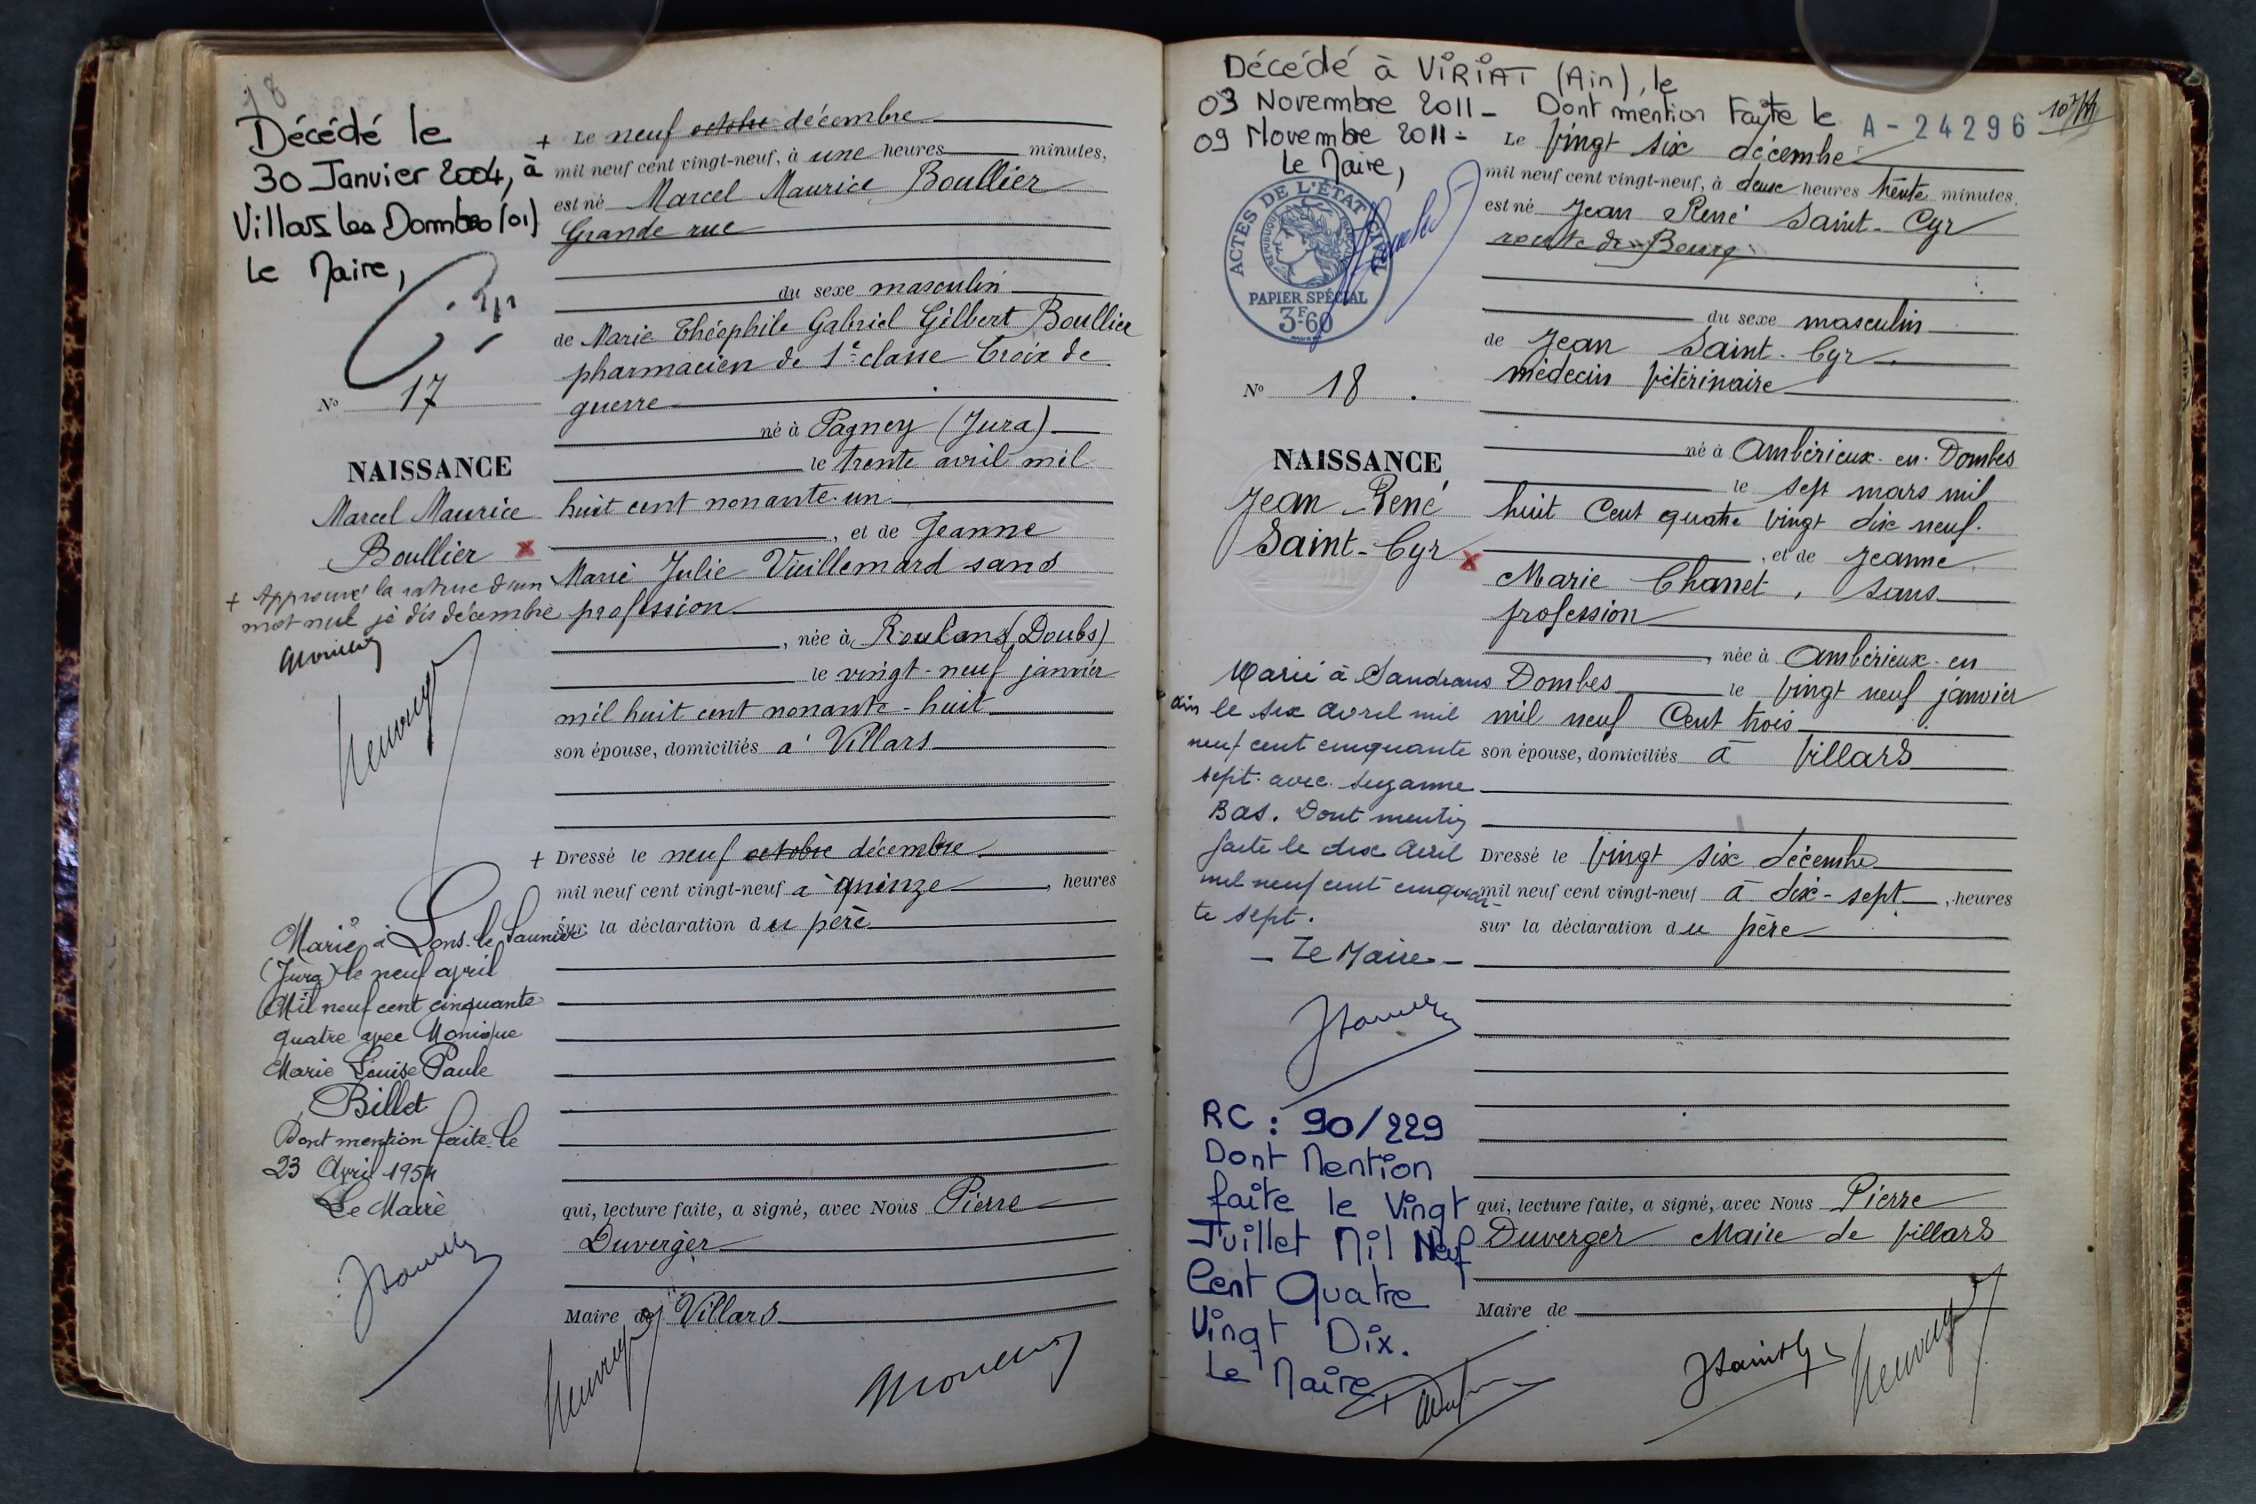 18
Décédé le
30 Janvier 2004, à
Villars les Dombes (01)
Le Maire,
N° 17
NAISSANCE
Marcel Maurice
Boullier x
+ Approuvé la rature d'un
mot nul je dis décembre
Marié à Lons-le-Saunier
(Jura) le neuf avril
Mil neuf cent cinquante
quatre avec Monique
Marie Louise Paule
Billet
Dont mention faite le
23 Avril 1954
Le Maire
+ Le neuf octobre décembre
mil neuf cent vingt-neuf, à une heures minutes,
est né Marcel Maurice Boullier
Grande rue
du sexe masculin
de Marie Théophile Gabriel Gilbert Boullier
pharmacien de 1e classe Croix de
guerre
né à Pagney (Jura)
le trente avril mil
huit cent nonante-un
, et de Jeanne
Marie Julie Vuillemard sans
profession
, née à Roulans (Doubs)
le vingt-neuf janvier
mil huit cent nonante-huit
son épouse, domiciliés à Villars
+ Dressé le neuf octobre décembre
mil neuf cent vingt-neuf à quinze , heures
sur la déclaration du père
qui, lecture faite, a signé, avec Nous Pierre
Duverger
Maire de Villars
Décédé à VIRIAT (Ain), le
03 Novembre 2011 - Dont mention Faite le
09 Novembre 2011 -
Le Maire,
A-24296
ACTES DE L'ÉTAT CIVIL
PAPIER SPÉCIAL
3F60
N° 18.
NAISSANCE
Jean René
Saint-Cyr x
Marié à Sandrans
Ain le six avril mil
neuf cent cinquante
sept avec Suzanne
Bas. Dont mention
faite le dix avril
mil neuf cent cinquan-
te sept.
- Le Maire -
RC : 90/229
Dont Mention
faite le Vingt
Juillet Mil Neuf
Cent Quatre
Vingt Dix.
Le Maire
Le vingt six décembre
mil neuf cent vingt-neuf, à deux heures trente minutes,
est né Jean René Saint-Cyr
route de Bourg
du sexe masculin
de Jean Saint-Cyr
médecin vétérinaire
né à Ambérieux-en-Dombes
le sept mars mil
huit Cent quatre vingt dix neuf.
, et de Jeanne
Marie Chanet, sans
profession
, née à Ambérieux-en
Dombes le vingt neuf janvier
mil neuf Cent trois
son épouse, domiciliés à Villars
Dressé le vingt six décembre
mil neuf cent vingt-neuf à dix-sept , heures
sur la déclaration du père
qui, lecture faite, a signé, avec Nous Pierre
Duverger Maire de Villars
Maire de